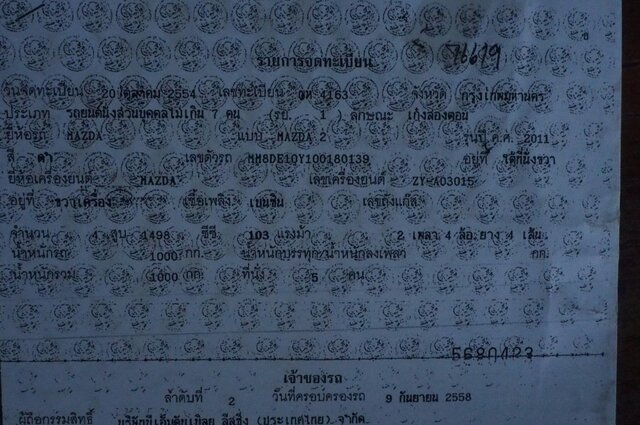 71619
รายการจดทะเบียน
วันจดทะเบียน 20 ตุลาคม 2554 เลขทะเบียน 4163 จังหวัด กรุงเทพมหานคร
ประเภท รถยนต์นั่งส่วนบุคคลไม่เกิน 7 คน (รย. 1 ) ลักษณะ เก๋งสองตอน
ยี่ห้อรถ MAZDA แบบ MAZDA 2 รุ่นปี ค.ศ. 2011
สี ดำ เลขตัวรถ MM8DE10Y100180139 อยู่ที่ ใต้ที่นั่งขวา
ยี่ห้อเครื่องยนต์ MAZDA เลขเครื่องยนต์ ZY-A03015
อยู่ที่ ขวาเครื่อง เชื้อเพลิง เบนซิน เลขถังแก๊ส
จำนวน 4 สูบ 1498 ซีซี 103 แรงม้า 2 เพลา 4 ล้อ ยาง 4 เส้น
น้ำหนักรถ 1000 กก. น้ำหนักบรรทุก/น้ำหนักลงเพลา กก.
น้ำหนักรวม 1000 กก. ที่นั่ง 5 คน
5680423
เจ้าของรถ
ลำดับที่ 2 วันที่ครอบครองรถ 9 กันยายน 2558
ผู้ถือกรรมสิทธิ์ ลีสซิ่ง (ประเทศไทย) จำกัด